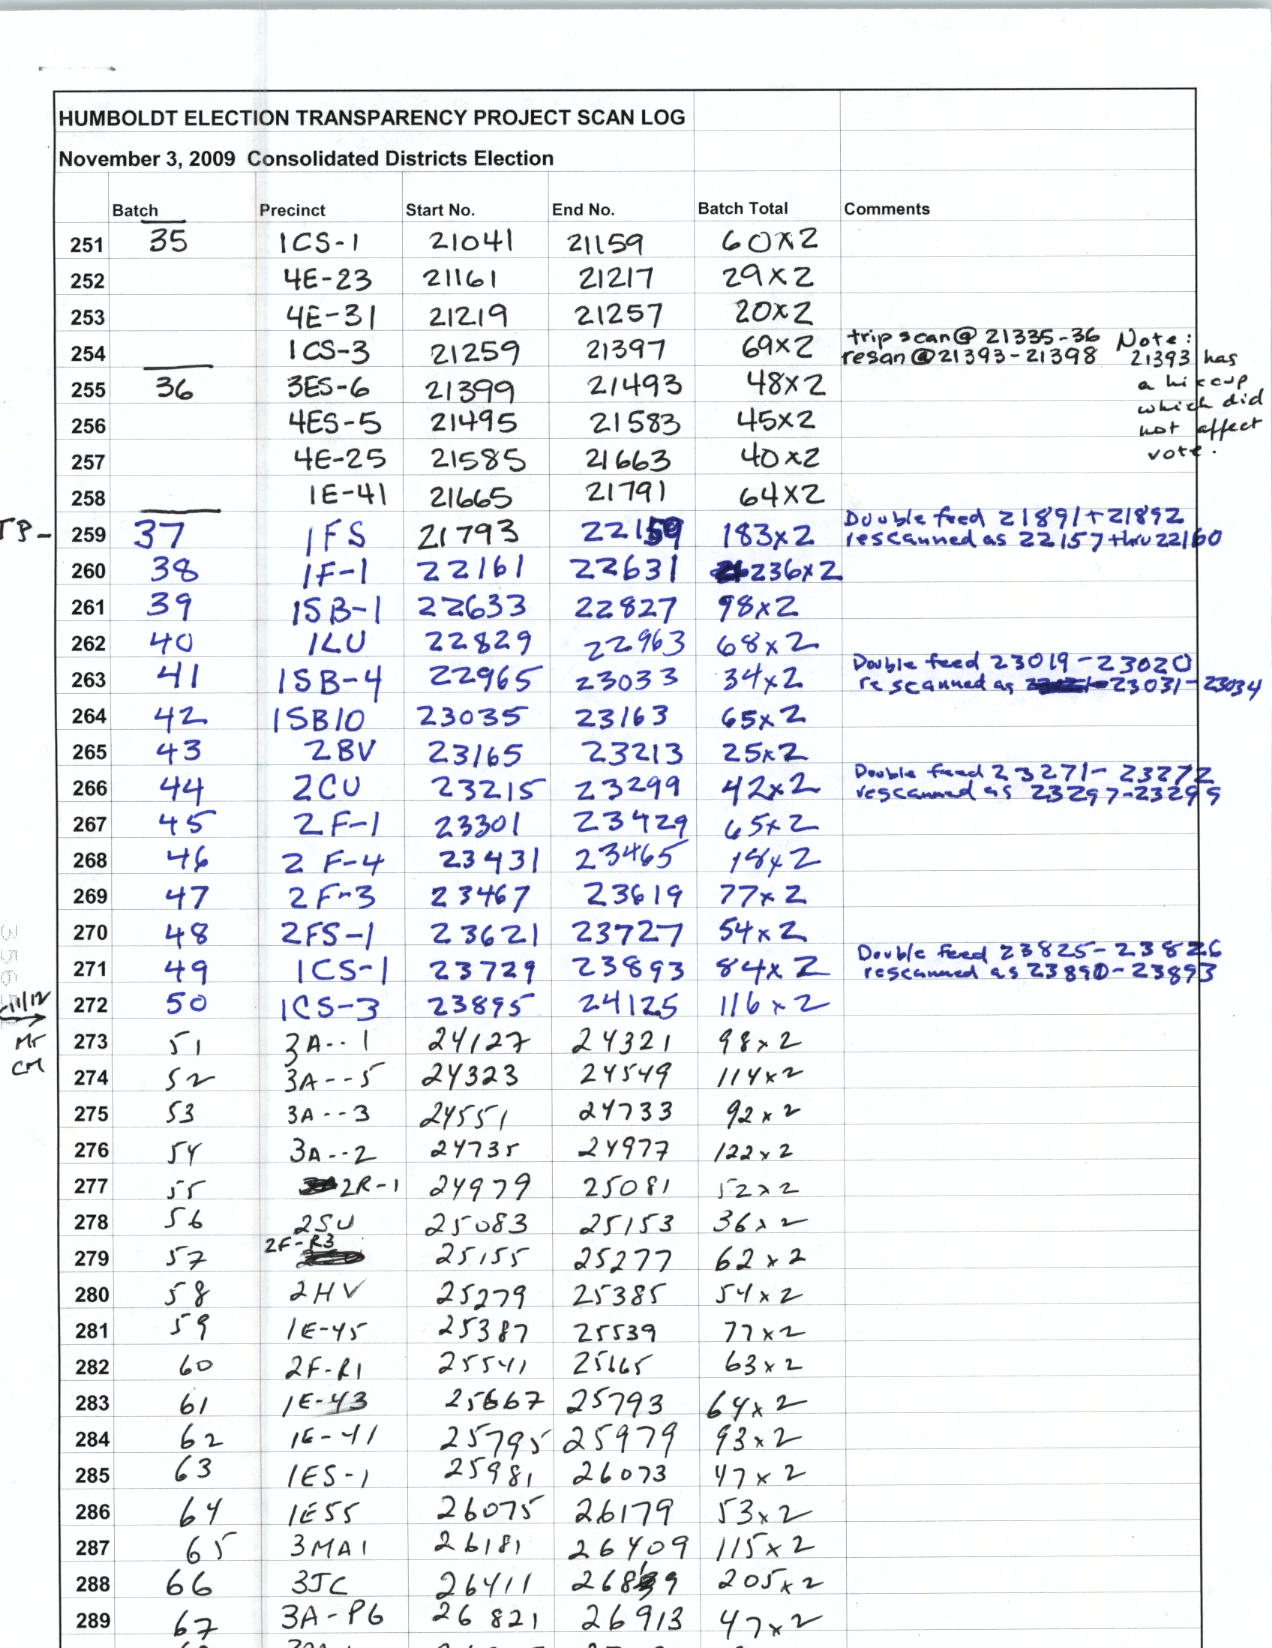 HUMBOLDT ELECTION TRANSPARENCY PROJECT SCAN LOG
November 3, 2009 Consolidated Districts Election
Batch Precinct Start No. End No. Batch Total Comments
251 35 1CS-1 21041 21159 60x2
252 4E-23 21161 21217 29x2
253 4E-31 21219 21257 20x2
254 1CS-3 21259 21397 69x2 trip scan@ 21335-36 resan@21393-21398 Note: 21393 has a hiccup which did not affect vote.
255 36 3ES-6 21399 21493 48x2
256 4ES-5 21495 21583 45x2
257 4E-25 21585 21663 40x2
258 1E-41 21665 21791 64x2
TP- 259 37 1FS 21793 22159 183x2 Double feed 21891+21892 rescanned as 22157 thru 22160
260 38 1F-1 22161 22631 236x2
261 39 1SB-1 22633 22827 98x2
262 40 1LU 22829 22963 68x2
263 41 1SB-4 22965 23033 34x2 Double feed 23019-23020 rescanned as 23031-23034
264 42 1SB10 23035 23163 65x2
265 43 2BV 23165 23213 25x2
266 44 2CU 23215 23299 42x2 Double feed 23271-23272 rescanned as 23297-23299
267 45 2F-1 23301 23429 65x2
268 46 2F-4 23431 23465 18x2
269 47 2F-3 23467 23619 77x2
270 48 2FS-1 23621 23727 54x2
271 49 1CS-1 23729 23893 84x2 Double feed 23825-23826 rescanned as 23890-23893
11/12 272 50 1CS-3 23895 24125 116x2
Mr
CM
273 51 3A--1 24127 24321 98x2
274 52 3A--5 24323 24549 114x2
275 53 3A--3 24551 24733 92x2
276 54 3A--2 24735 24977 122x2
277 55 2R-1 24979 25081 52x2
278 56 2SU 25083 25153 36x2
279 57 2F-R3 25155 25277 62x2
280 58 2HV 25279 25385 54x2
281 59 1E-45 25387 25539 77x2
282 60 2F-R1 25541 25665 63x2
283 61 1E-43 25667 25793 64x2
284 62 1E-41 25795 25979 93x2
285 63 1ES-1 25981 26073 47x2
286 64 1ES5 26075 26179 53x2
287 65 3MA1 26181 26409 115x2
288 66 3JC 26411 205x2
289 67 3A-P6 26821 26913 47x2